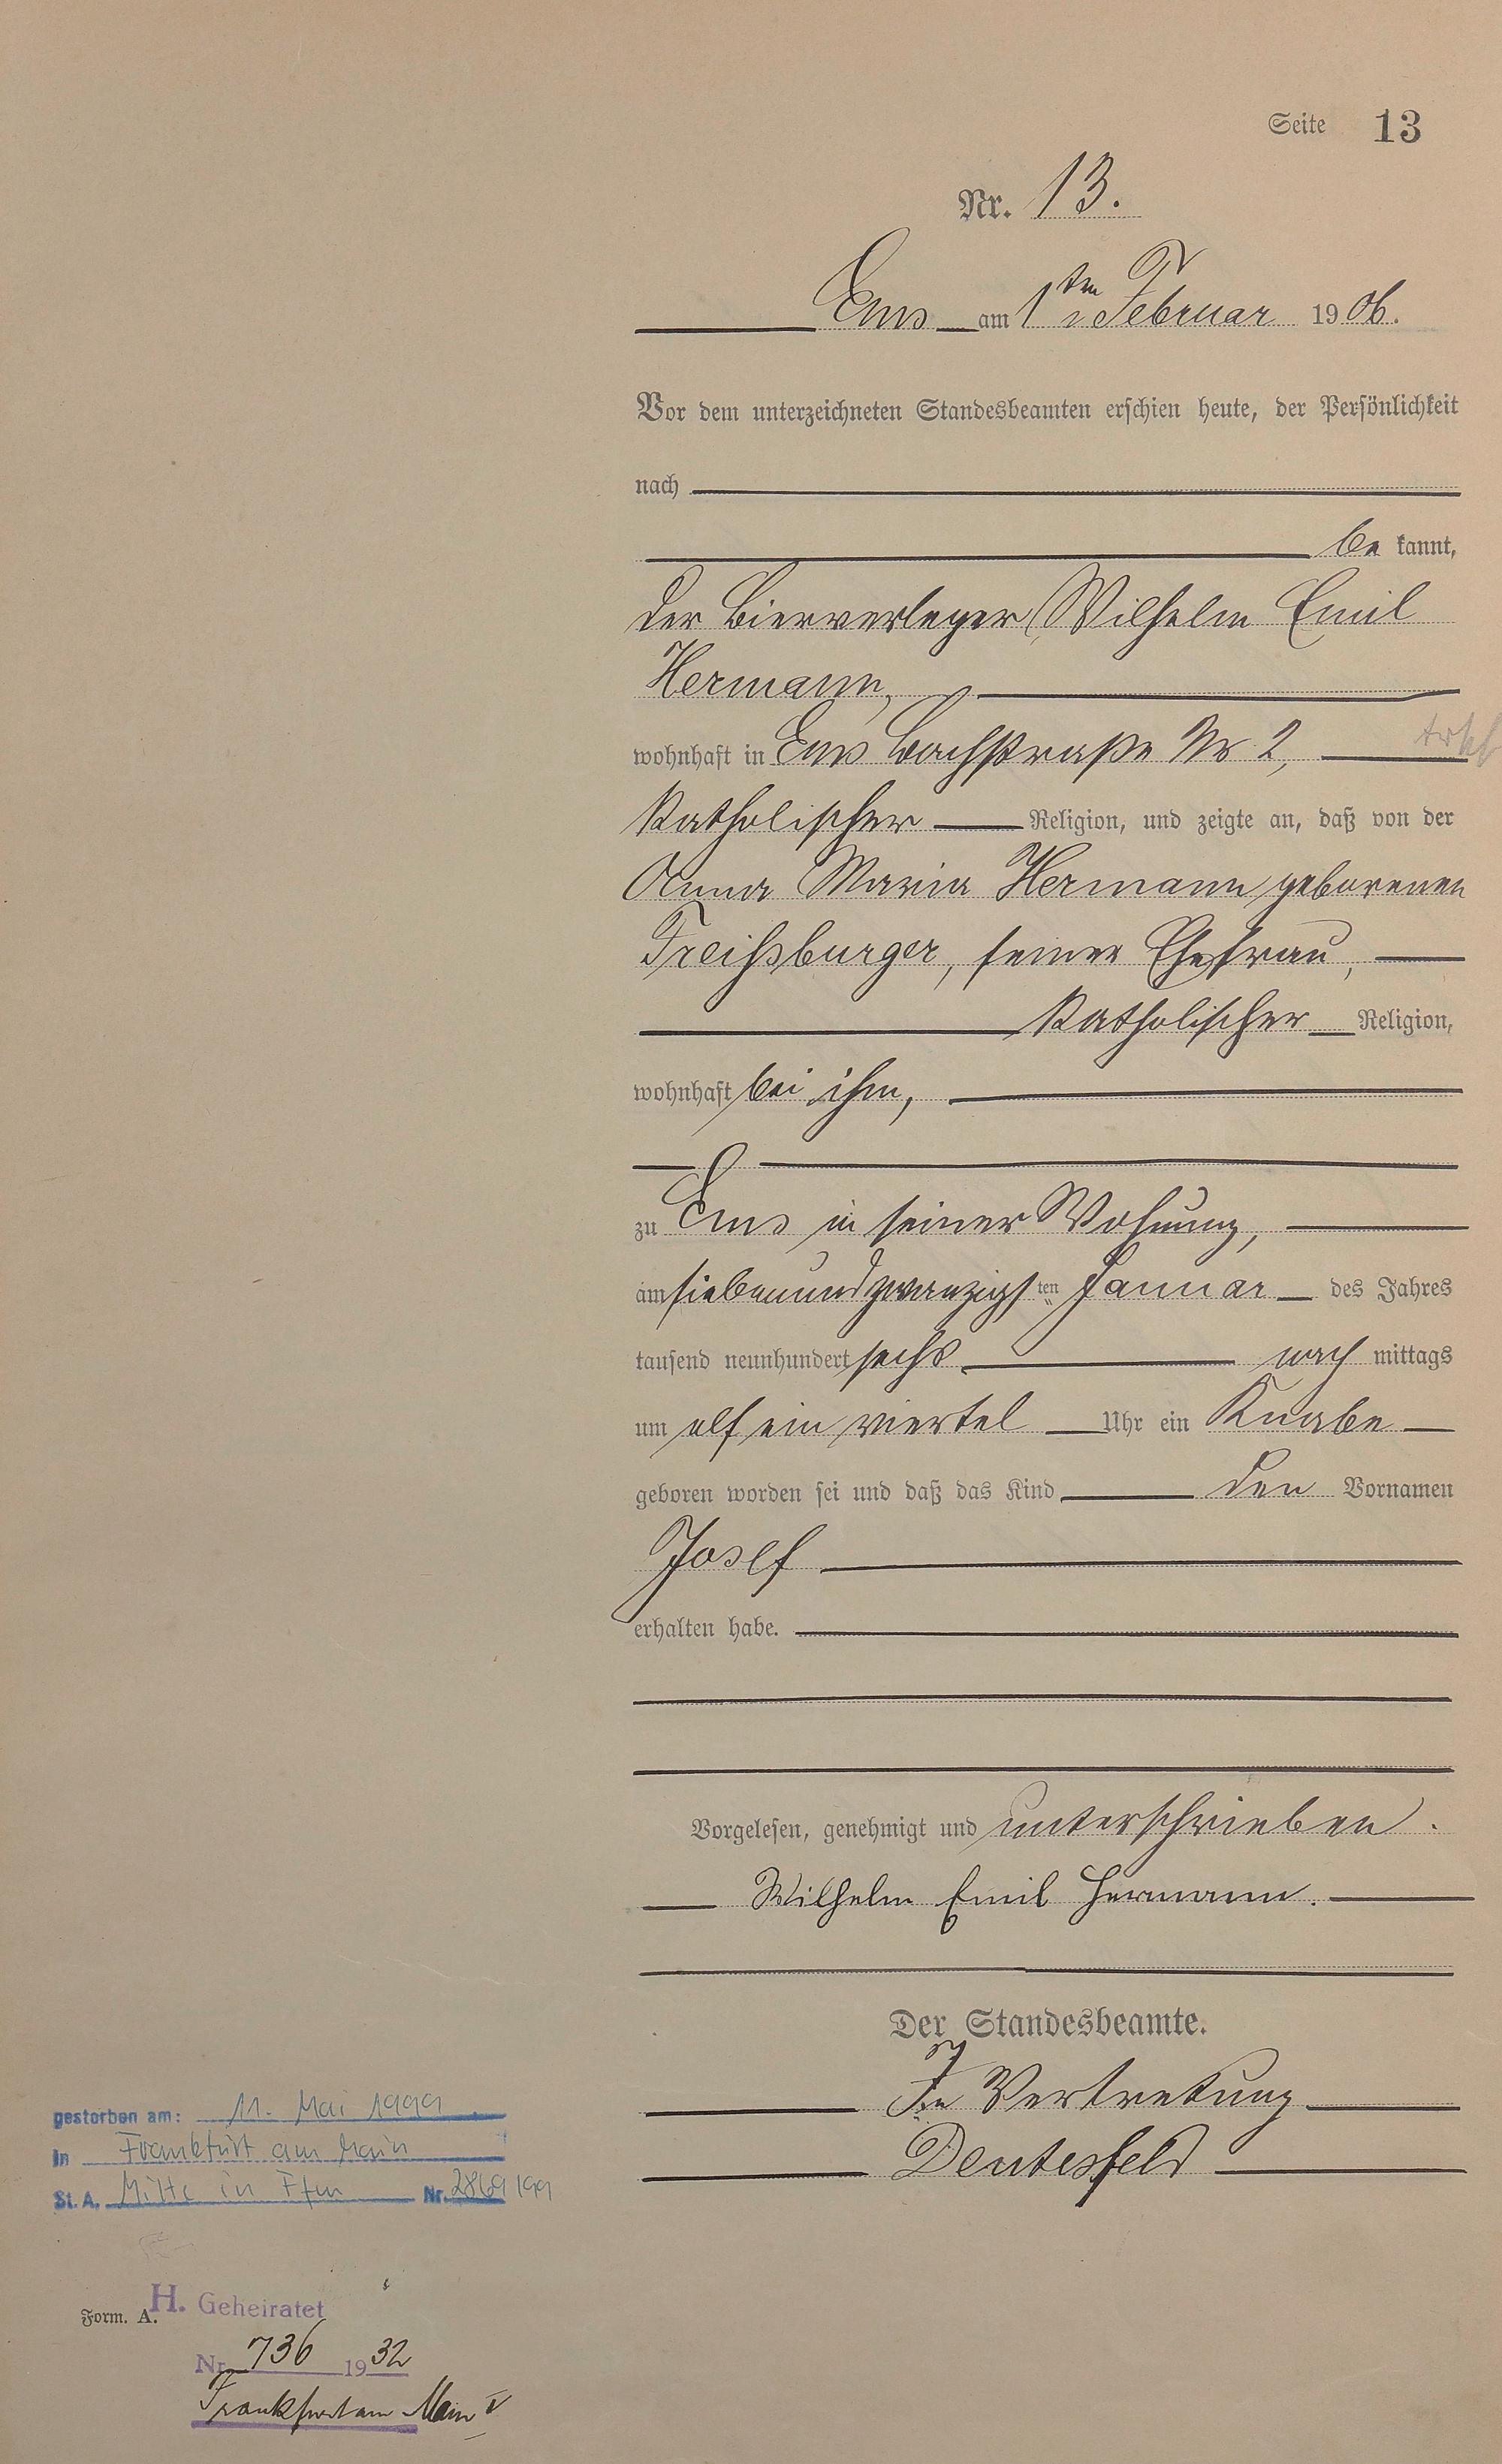 Seite 13
Nr. 13.
Ems am 1ten Februar 1906.
Vor dem unterzeichneten Standesbeamten erschien heute, der Persönlichkeit
nach
be kannt,
der Bierverleger Wilhelm Emil
Hermann,
wohnhaft in Ems Bachstraße Nr 2,
katholischer Religion, und zeigte an, daß von der
Anna Maria Hermann geborenen
Freihsburger, seiner Ehefrau,
katholischer Religion,
wohnhaft bei ihm,
zu Ems in seiner Wohnung,
am siebenundzwanzigsten Januar des Jahres
tausend neunhundert sechs nach mittags
um elf ein viertel Uhr ein Knabe
geboren worden sei und daß das Kind den Vornamen
Josef
erhalten habe.
Vorgelesen, genehmigt und unterschrieben.
Wilhelm Emil Hermann.
Der Standesbeamte.
In Vertretung
Deutesfeld
gestorben am: 11. Mai 1999
in Frankfurt am Main
St. A. Mitte in Ffm Nr. 2869/99
Form. A.
H. Geheiratet
Nr. 736 1932
Frankfurt am Main V